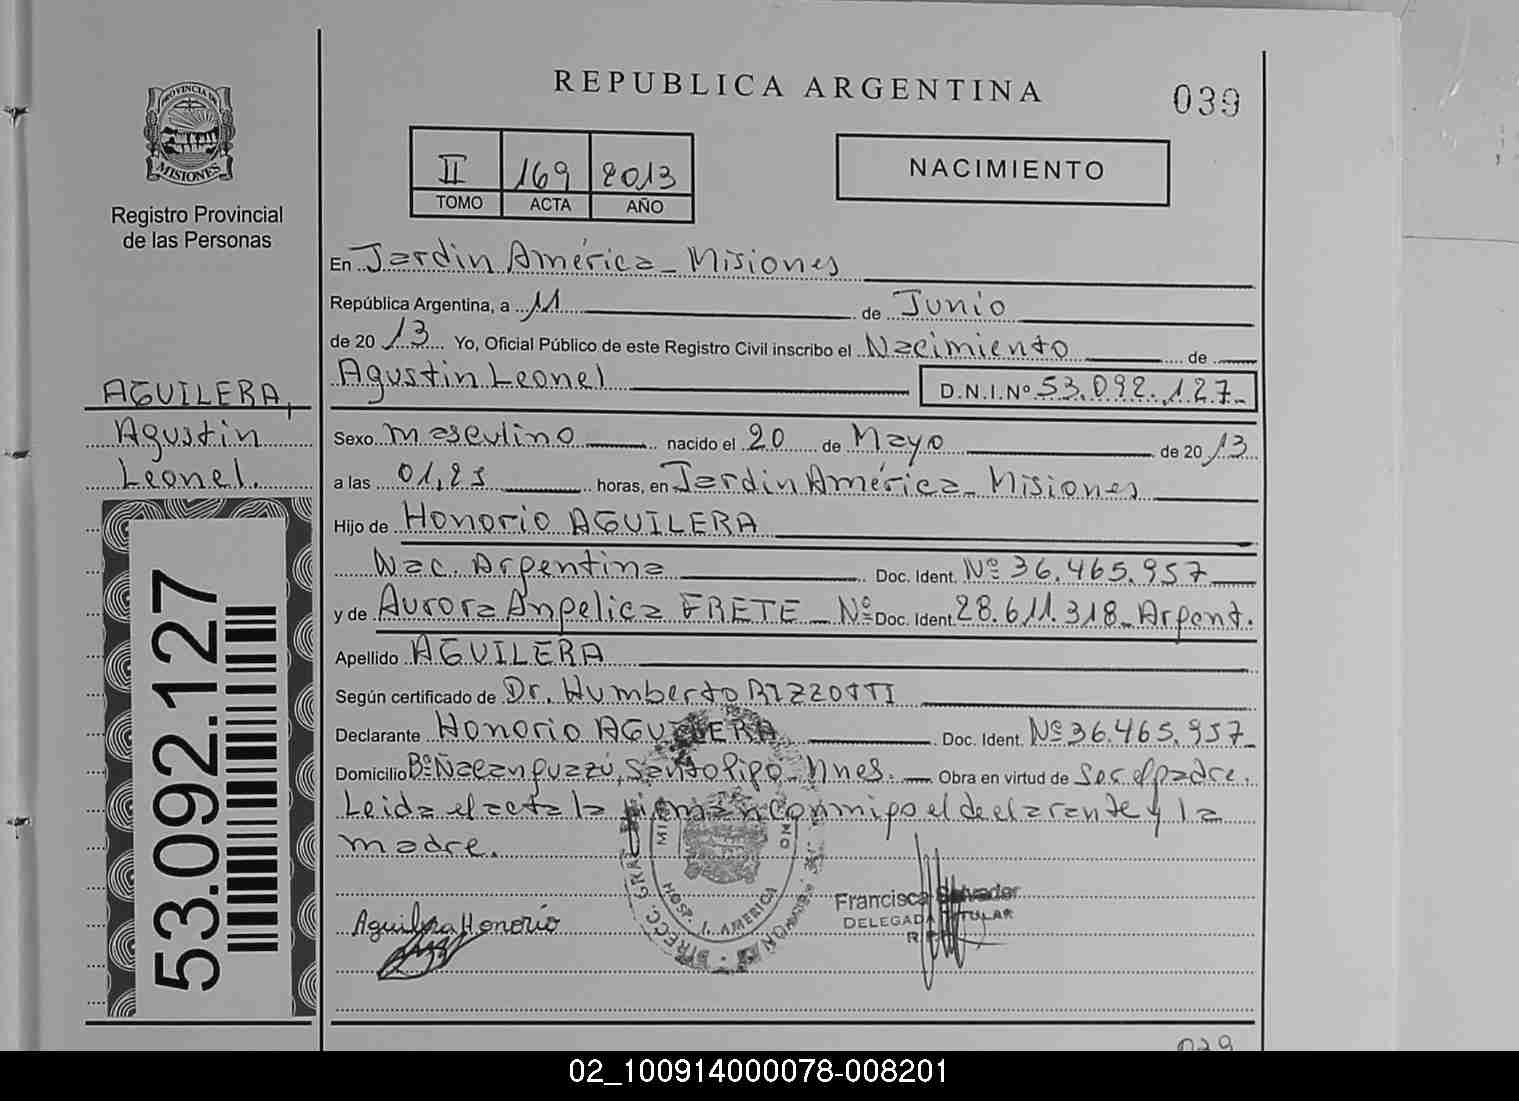 REPUBLICA ARGENTINA
039
PROVINCIA DE
MISIONES
Registro Provincial
de las Personas
II 169 2013
TOMO ACTA AÑO
NACIMIENTO
En Jardin América - Misiones
República Argentina, a 11 de Junio
de 2013 Yo, Oficial Público de este Registro Civil inscribo el Nacimiento de
Agustin Leonel D.N.I.Nº 53.092.127-
AGUILERA,
Agustin
Leonel.
Sexo masculino nacido el 20 de Mayo de 2013
a las 01,25 horas, en Jardin América - Misiones
Hijo de Honorio AGUILERA
Nac. Argentina Doc. Ident. Nº 36.465.957
y de Aurora Angelica FRETE - Nº Doc. Ident. 28.611.318 - Argent.
Apellido AGUILERA
Según certificado de Dr. Humberto BIZZOTTI
Declarante Honorio AGUILERA Doc. Ident. Nº 36.465.957-
Domicilio Bº Ñacanguazú, Santo Pipo - Mnes. - Obra en virtud de Ser el padre.
Leida el acta la firman conmigo el declarante y la
madre.
53.092.127
Aguilera Honorio
HOSP. J. AMERICA
Francisca Salvador
DELEGADA TITULAR
039
02_100914000078-008201